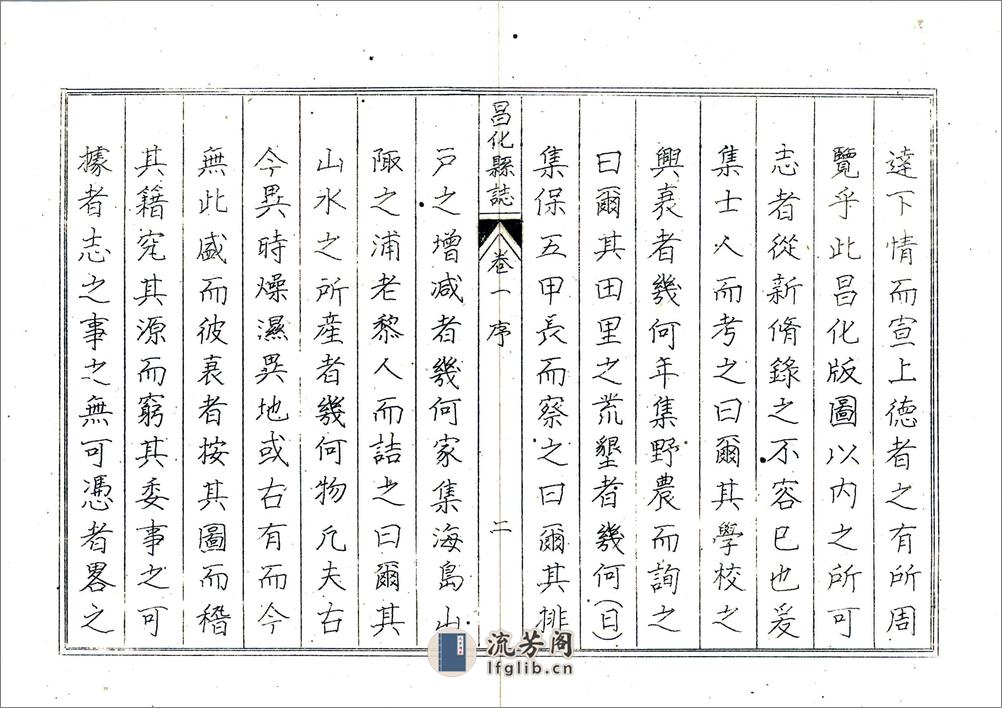 達下情而宣上德者之有所周
覽乎此昌化版圖以内之所可
志者從新脩錄之不容已也爰
集士人而考之曰爾其學校之
興衰者幾何年集野農而詢之
曰爾其田里之荒墾者幾何(日)
集保五甲長而察之曰爾其排
昌化縣誌 卷一 序 二
戸之增减者幾何家集海島山
陬之浦老黎人而詰之曰爾其
山水之所産者幾何物凡夫古
今異時燥濕異地或古有而今
無此盛而彼衰者按其圖而稽
其籍究其源而窮其委事之可
據者志之事之無可憑者畧之
流芳阁
lfglib.cn